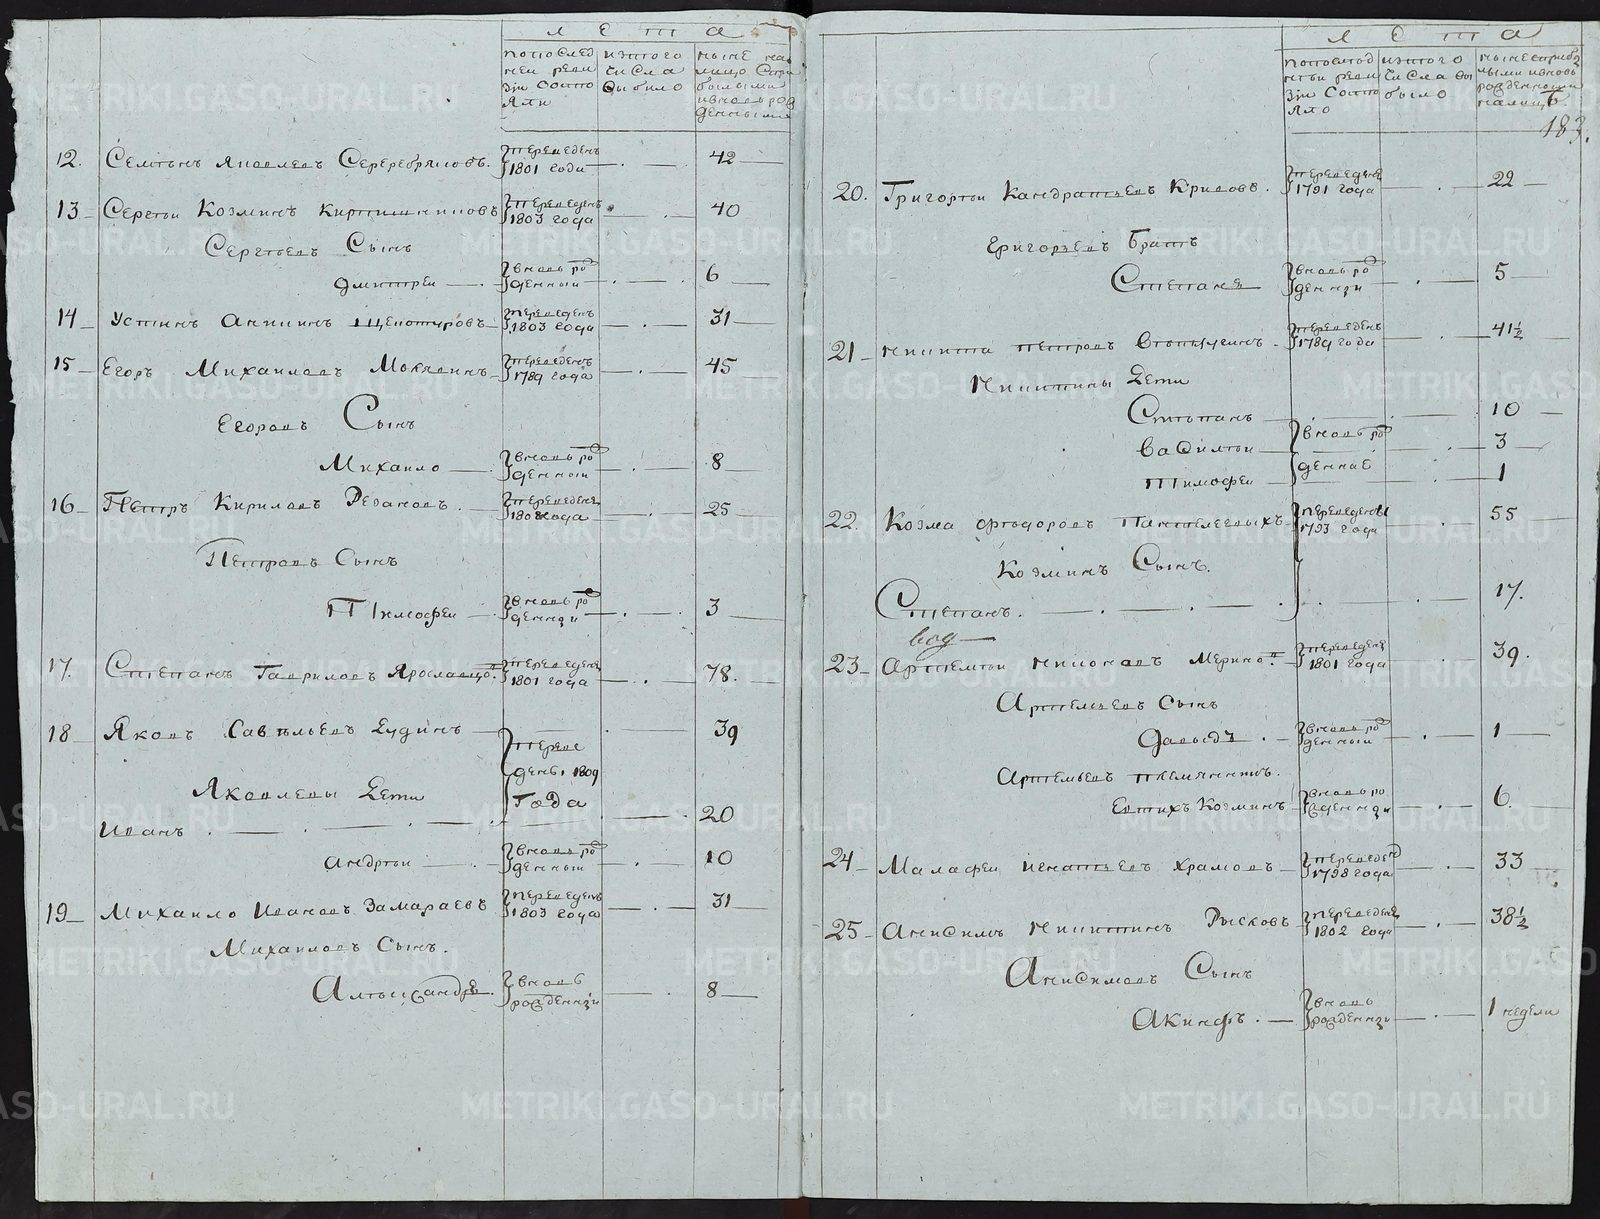 Лета
попослед
ней реви
зіи состо
яли
изтого
числа
выбыло
ныне на
лицо с при
былыми
ивновь рож
денными
12. Семенъ Яковлевъ Серебряковъ. переведенъ 1801 года 42
13 Сергеи Козминъ Кирпишниковъ переведенъ 1803 года 40
Сергеевъ Сынъ
Дмитреи вновь рож денныи 6
14 Устинъ Аникинъ Щепотуровъ переведенъ 1803 года 31
15 Егоръ Михаиловъ Мокринъ переведенъ 1789 года 45
Егоровъ Сынъ
Михаило вновь рож денныи 8
16 Петръ Кириловъ Резановъ переведенъ 1808 года 25
Петровъ Сынъ
Тимофеи вновь рож деннои 3
17. Степанъ Гавриловъ Ярославцо. переведенъ 1801 года 78.
18 Яковъ Савельевъ Юдинъ переве 39
дены 1809
Яковлевы Дети года
Иванъ 20
Андреи вновь рож денныи 10
19 Михаило Ивановъ Замараевъ переведенъ 1803 года 31
Михаиловъ Сынъ.
Александръ вновь рожденнои 8
Лета
попослед
неи реви
зіи состо
яло
изтого
числа вы
было
ныне сприбы
лыми ивновь
рожденными
налицо
6
183.
20. Григореи Кандратьевъ Кривовъ. переведенъ 1791 года 22
Григорьевъ Братъ
Степанъ вновь рож деннои 5
21 Никита Петровъ переведенъ 1789 года 41½
Никитины Дети
Степанъ 10
Василеи вновь рож 3
Тимофеи денные 1
22. Козма Федоровъ Пантелеевыхъ переведены 1793 года 55
Козминъ Сынъ.
Степанъ. 17.
23 Артемеи Никоновъ Мерино. переведенъ 1801 года 39.
Артемьевъ Сынъ
Давыдъ вновь рож денныи 1
Артемьевъ племянникъ.
Евтихъ Козминъ вновь рожденнои 6
24 Малафеи Игнатьевъ Храмовъ переведенъ 1798 года 33
25 Анисимъ Никитинъ Рысковъ переведенъ 1802 года 38½
Анисимовъ Сынъ
Акинфъ. вновь рожденнои 1 недели
METRIKI.GASO-URAL.RU